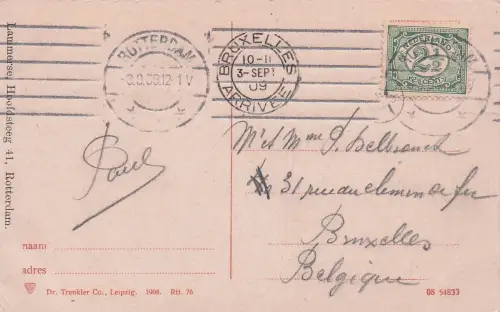 Laummerse, Hoofdsteeg 41, Rotterdam.
ROTTERDAM
12-1V
BRUXELLES
10-11
3-SEPT
09
ARRIVEE
NEDERLAND
2½
CENT
Paul
M'et Mme P. Delbrouck
31 rue au chemin de fer
Bruxelles
Belgique
naam
adres
Dr. Trenkler Co., Leipzig. 1908. Rtt. 76
08 54833